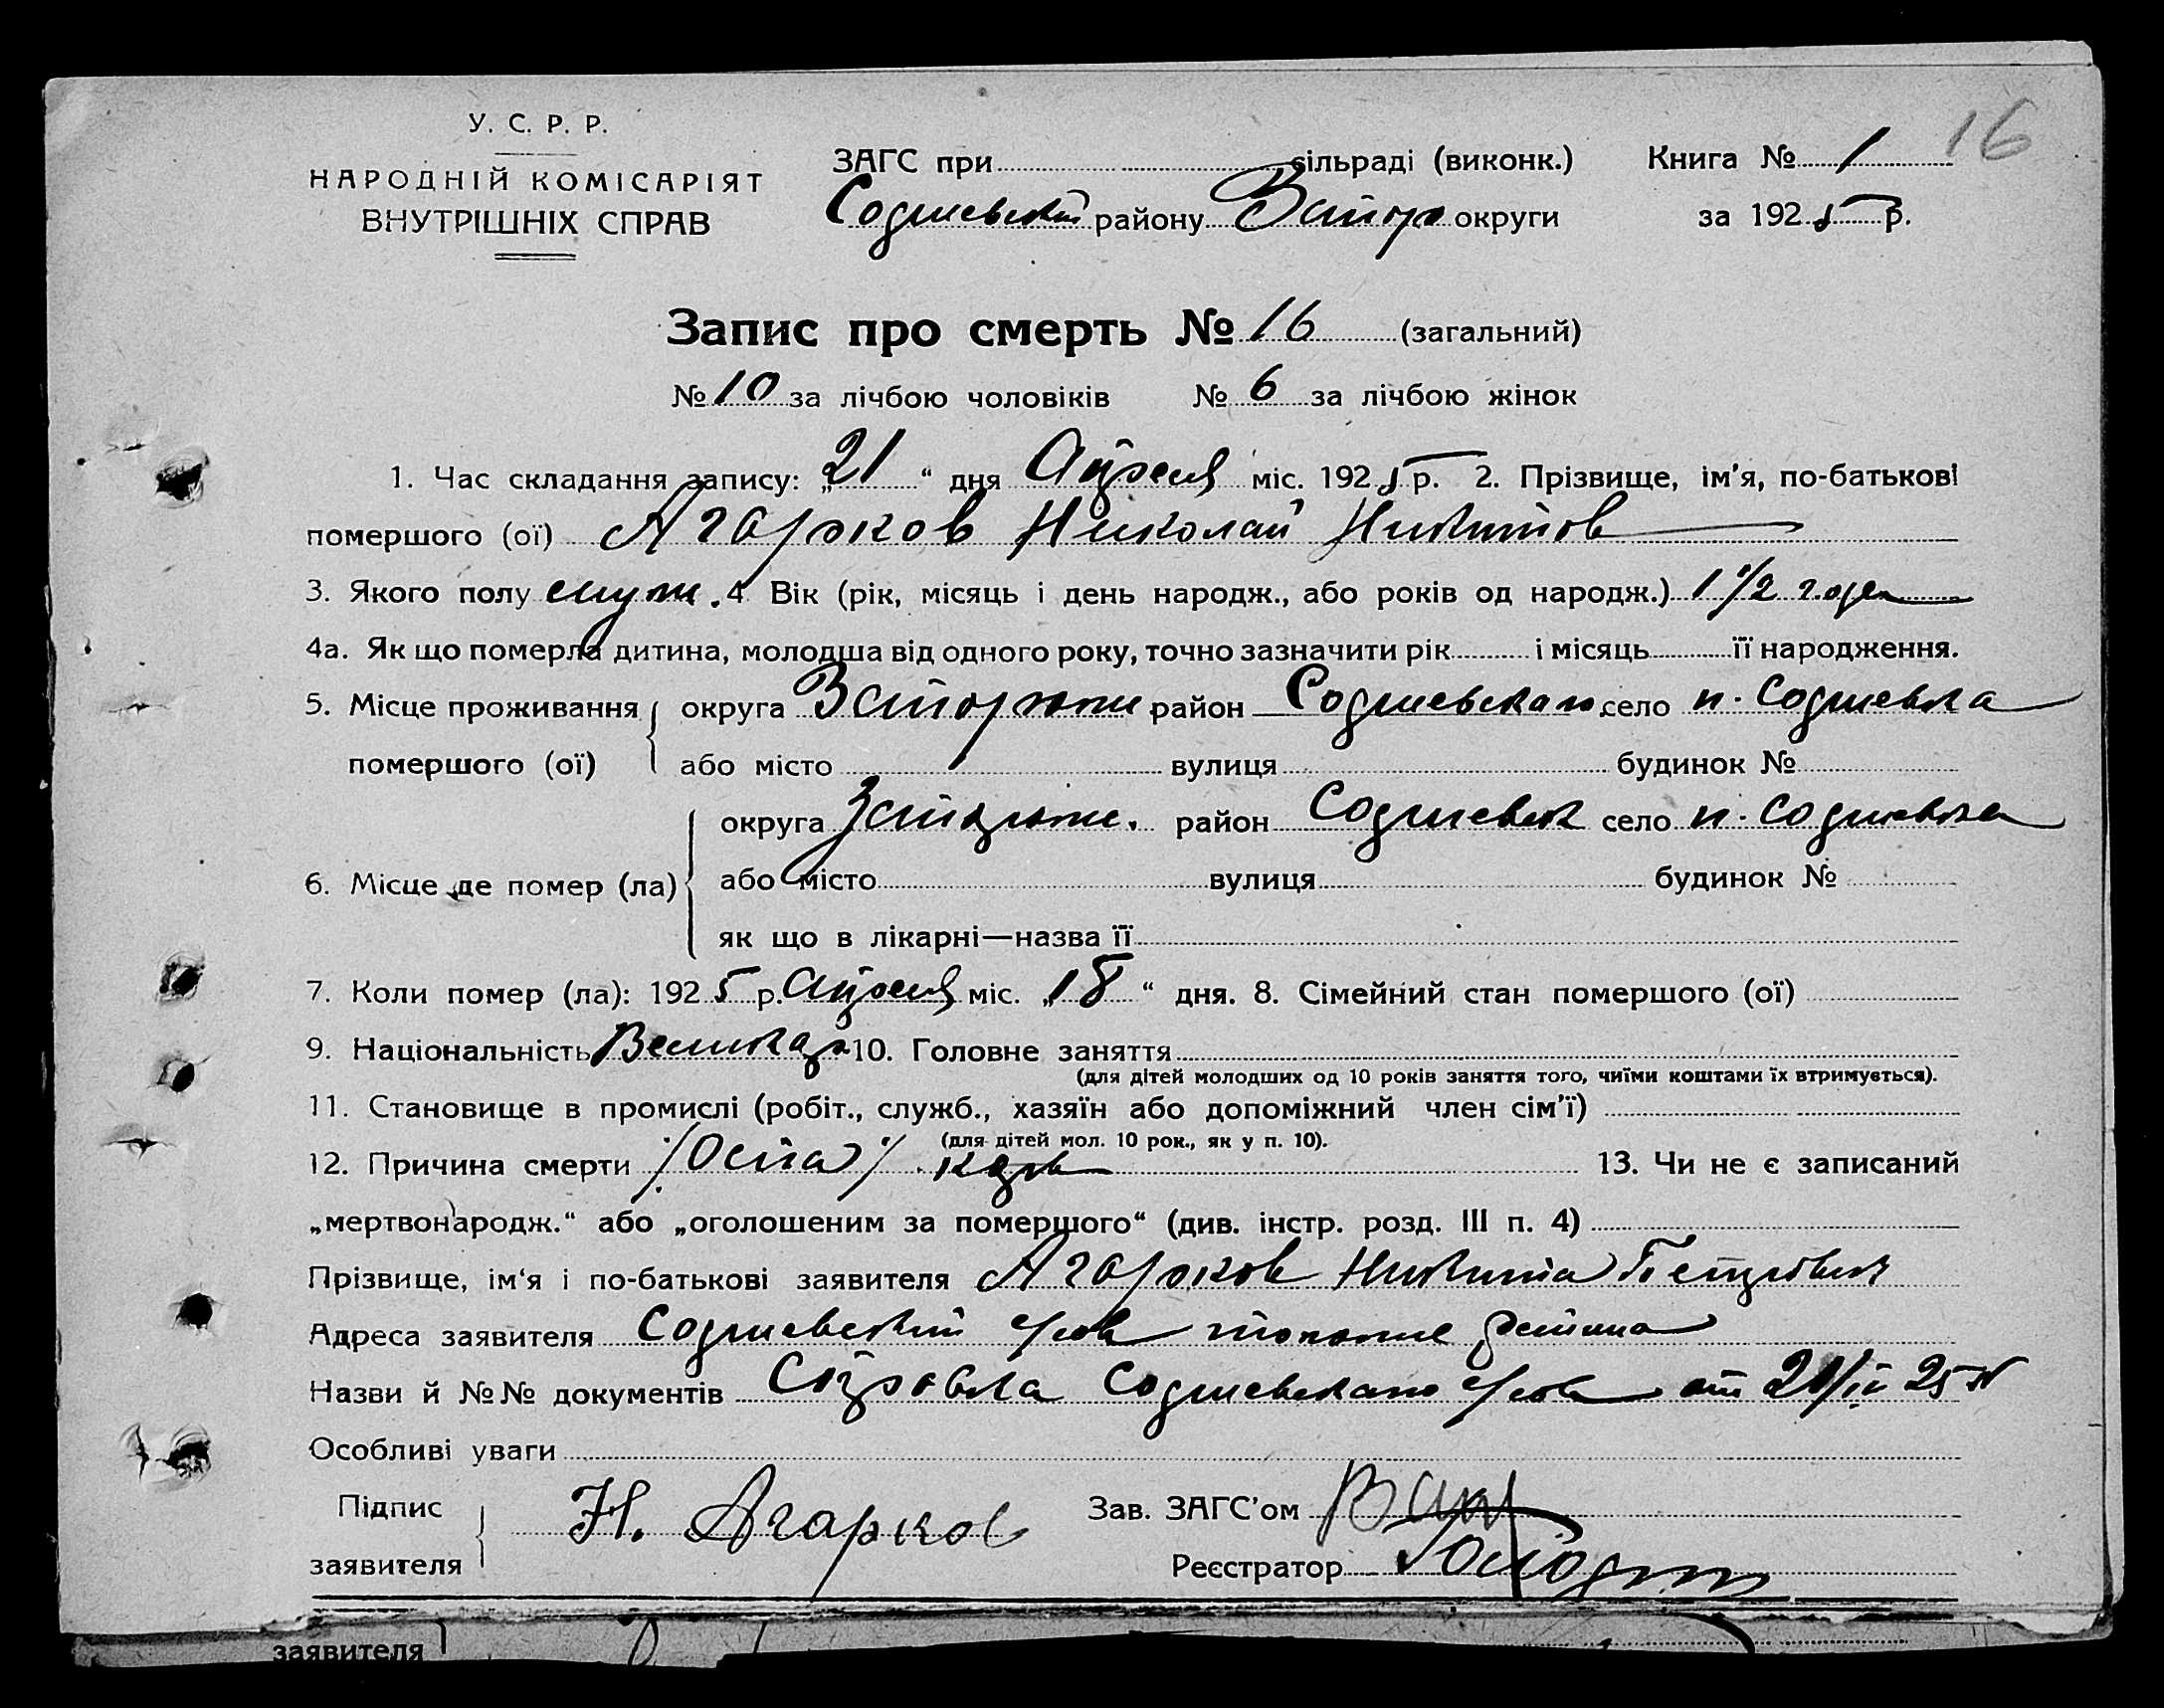 16
У. С. Р. Р.
НАРОДНІЙ КОМІСАРІЯТ
ВНУТРІШНІХ СПРАВ
ЗАГС при сільраді (виконк.)
Софиевский району Запор округи
Книга № 1
за 1925 р.
Запис про смерть № 16 (загальний)
№ 10 за лічбою чоловіків № 6 за лічбою жінок
1. Час складання запису: „21“ дня Апреля міс. 1925 р. 2. Прізвище, ім'я, по-батькові
помершого (ої) Агарков Николай Никитов
3. Якого полу муж. 4 Вік (рік, місяць і день народж., або років од народж.) 1 1/2 года
4а. Як що померла дитина, молодша від одного року, точно зазначити рік і місяць її народження.
5. Місце проживання помершого (ої) округа Запорож район Софиевскаго село п. Софиевка
або місто вулиця будинок №
6. Місце де помер (ла) округа Запорож. район Софиевск село п. Софиевка
або місто вулиця будинок №
як що в лікарні—назва її
7. Коли помер (ла): 1925 р. Апреля міс. „18“ дня. 8. Сімейний стан помершого (ої)
9. Національність Великор 10. Головне заняття
(для дітей молодших од 10 років заняття того, чиїми коштами їх втримується).
11. Становище в промислі (робіт., служб., хазяїн або допоміжний член сім'ї)
(для дітей мол. 10 рок., як у п. 10).
12. Причина смерти /Оспа/ 13. Чи не є записаний
„мертвонародж.“ або „оголошеним за помершого“ (див. інстр. розд. III п. 4)
Прізвище, ім'я і по-батькові заявителя Агарков Никита Петрович
Адреса заявителя Софиевский
Назви й №№ документів Справка Софиевскаго от 21/IV 25
Особливі уваги
Підпис заявителя Н. Агарков
Зав. ЗАГС'ом
Реєстратор
заявителя